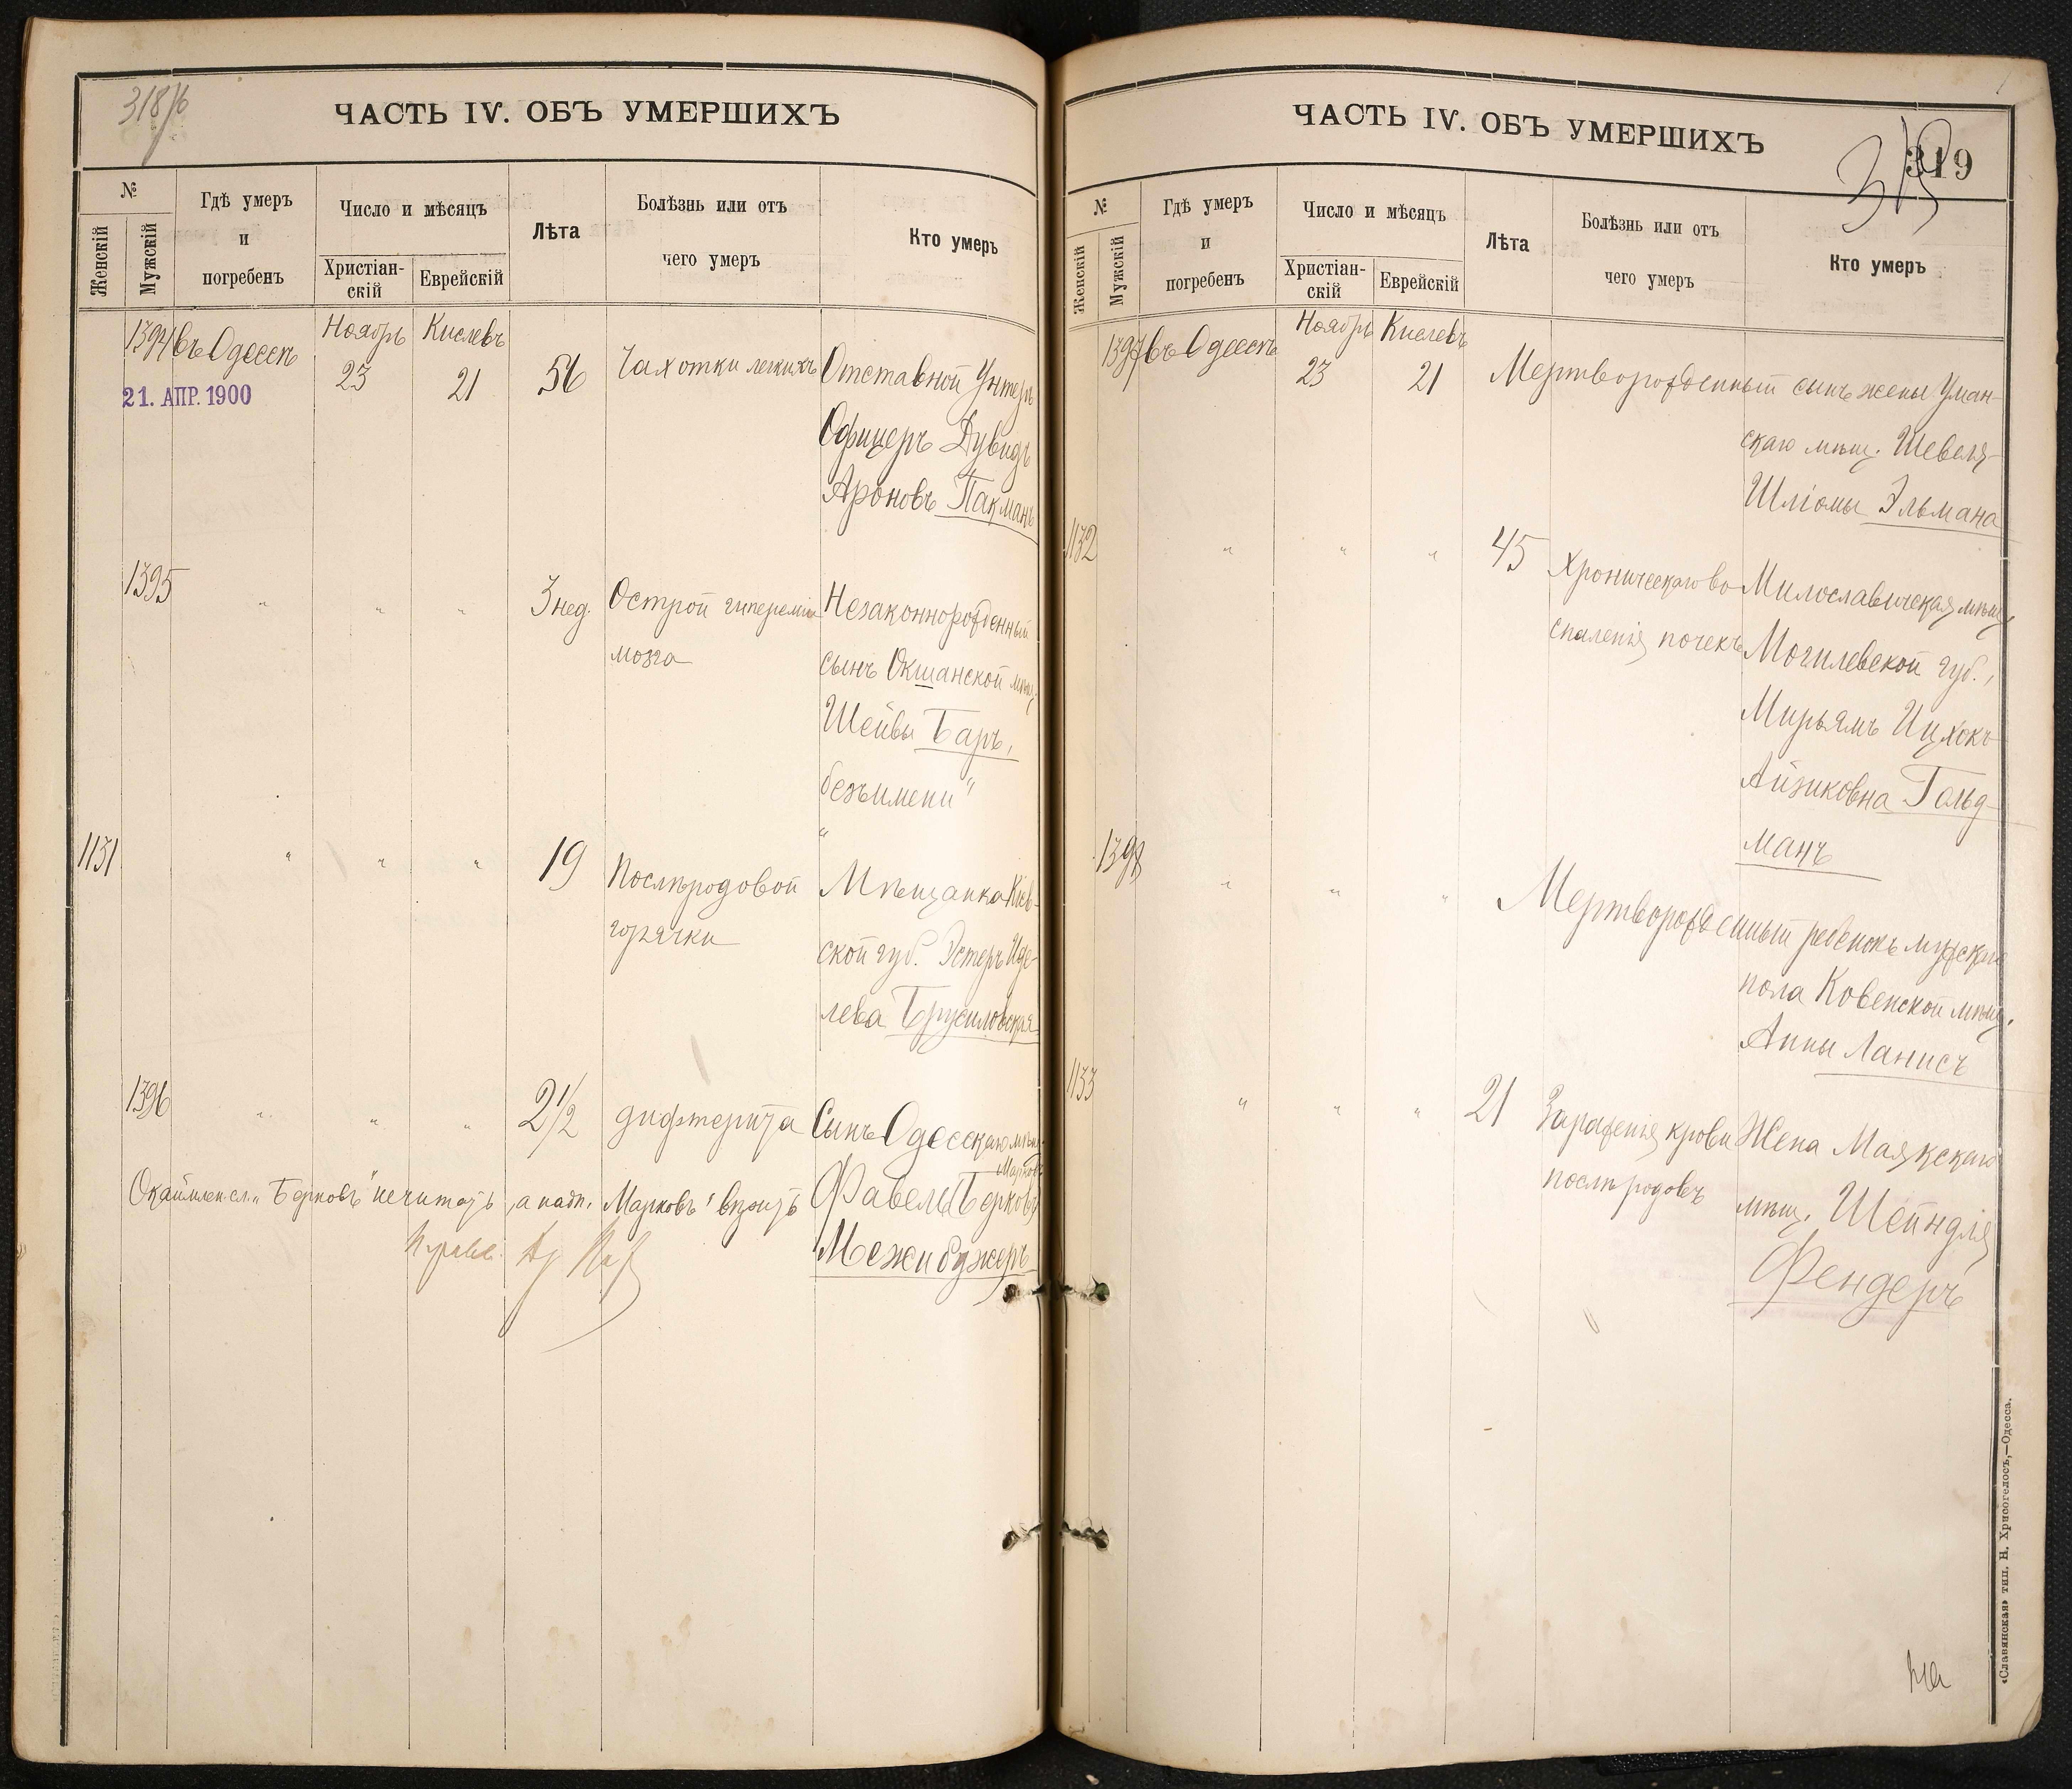 ЧАСТЬ IV. ОБЪ УМЕРШИХЪ
№
Женскій
Мужскій
Гдѣ умеръ
и
погребенъ
Число и мѣсяцъ
Христіан-
скій
Еврейскій
Лѣта
Болѣзнь или отъ
чего умеръ
Кто умеръ
1394 въ Одессѣ
21. АПР. 1900
Ноябрь
23
Кислевъ
21
56
Чахотки легкихъ
Отставной Унтеръ
Офицеръ Дувидъ
Ароновъ Пакманъ
1395 " " "
3 нед.
Острой гипереміи
мозга
Незаконнорожденный
сынъ Окшанской мѣщ.
Шейвы Баръ,
безъ имени"
"
1131 " " "
19
Послѣродовой
горячки
Мѣщанка Кіев-
ской губ. Эстеръ Иде-
лева Брусиловская
1396 " " "
2½
дифтерита
Сынъ Одесскаго мѣщ.
Марковъ
Фавель Берковъ
Межибужеръ
Окаймлен. сл. „Берковъ" не читать, а надп. „Марковъ" вѣрить
ЧАСТЬ IV. ОБЪ УМЕРШИХЪ
319
№
Женскій
Мужскій
Гдѣ умеръ
и
погребенъ
Число и мѣсяцъ
Христіан-
скій
Еврейскій
Лѣта
Болѣзнь или отъ
чего умеръ
Кто умеръ
1397 въ Одессѣ
Ноябрь
23
Кислевъ
21
Мертворожденный сынъ жены Уман-
скаго мѣщ. Шевеля-
Шліомы Эльмана
1132 " " "
45
Хроническаго во-
спаленія почекъ
Милославичская мѣщ.
Могилевской губ.,
Мирьямъ Ицхокъ-
Айзиковна Гольд-
манъ
1398 " " "
Мертворожденный ребенокъ мужскаго
пола Ковенской мѣщ.
Анны Ланисъ
1133 " " "
21
Зараженія крови
послѣ родовъ
Жена Маякскаго
мѣщ. Шейндля
Фендеръ
«Славянская» тип. Н. Хрисогелосъ,—Одесса.